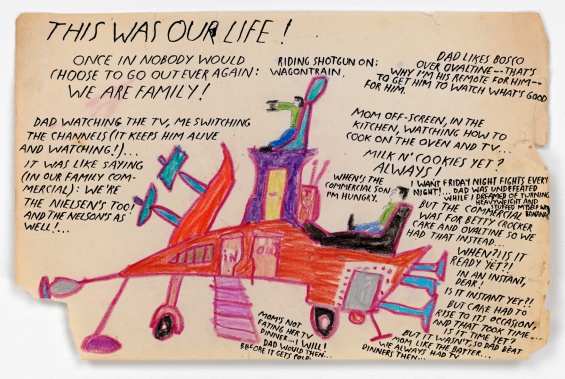 THIS WAS OUR LIFE!
ONCE IN NOBODY WOULD
CHOOSE TO GO OUT EVER AGAIN:
WE ARE FAMILY!
RIDING SHOTGUN ON:
WAGONTRAIN.
DAD LIKES BOSCO
OVER OVALTINE---THAT'S
WHY I'M HIS REMOTE FOR HIM--
TO GET HIM TO WATCH WHAT'S GOOD
FOR HIM.
DAD WATCHING THE TV, ME SWITCHING
THE CHANNELS (IT KEEPS HIM ALIVE
AND WATCHING!)...
IT WAS LIKE SAYING
(IN OUR FAMILY COM-
MERCIAL): WE'RE
THE NIELSEN'S TOO!
AND THE NELSON'S AS
WELL!...
MOM OFF-SCREEN, IN THE
KITCHEN, WATCHING HOW TO
COOK ON THE OVEN AND TV...
MILK N' COOKIES YET?
ALWAYS!
WHEN'S THE
COMMERCIAL SON?
I'M HUNGRY.
I WANT FRIDAY NIGHT FIGHTS EVERY
NIGHT!... DAD WAS UNDEFEATED
WHILE I DREAMED OF TURNING
HEAVYWEIGHT AND
STUFFED MYSELF W/
BANANAS
BUT THE COMMERCIAL
WAS FOR BETTY CROCKER
CAKE AND OVALTINE SO WE
HAD THAT INSTEAD...
WHEN?! IS IT
READY YET?!
IN AN INSTANT,
DEAR!
IS IT INSTANT YET?!
BUT CAKE HAD TO
RISE TO ITS OCCASION,
AND THAT TOOK TIME...
IS IT TIME YET?
BUT IT WASN'T, SO DAD BEAT
MOM LIKE THE BATTER...
WE ALWAYS HAD TV
DINNERS THEN...
IN OUT
MOM'S NOT
EATING HER TV
DINNER... I WILL!
DAD WOULD THEN...
BEFORE IT GETS COLD.